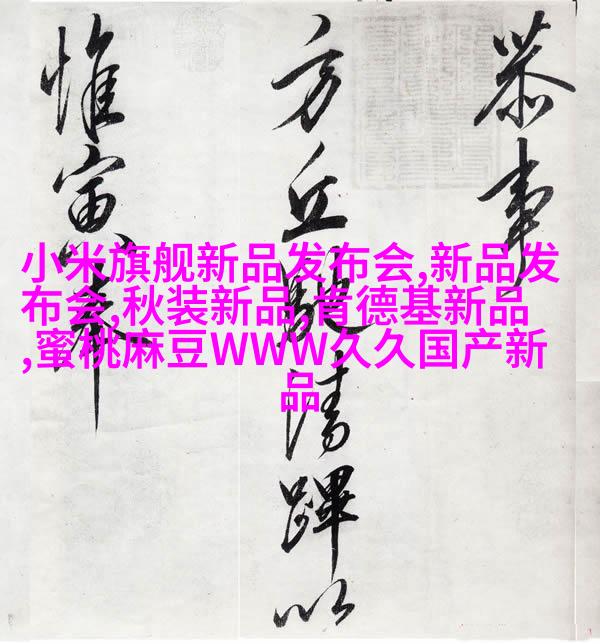 恭事
方丘馳清蹕以
惟寅奉
小米旗舰新品发布会,新品发
布会,秋装新品,肯德基新品
,蜜桃麻豆WWW久久国产新
品